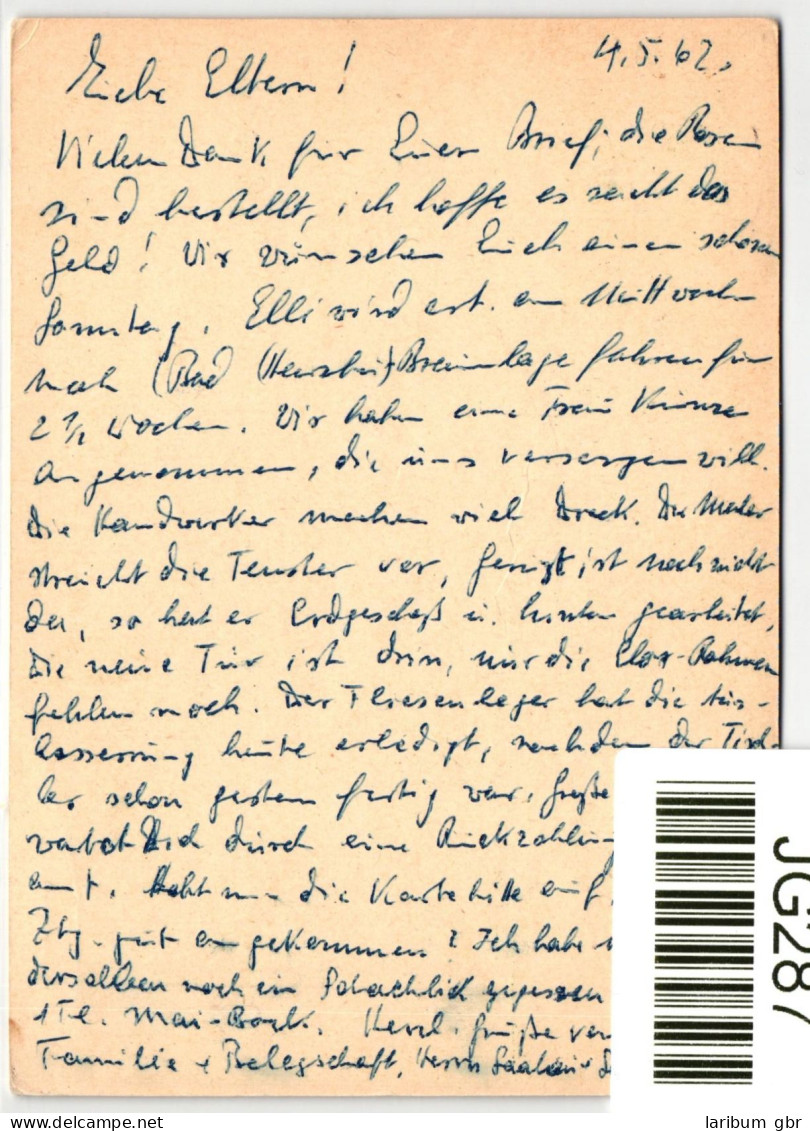 4.5.62.
Liebe Eltern!
Vielen Dank für Euern Brief, die Rosen
sind bestellt, ich hoffe es reicht das
Geld! Wir wünschen Euch einen schönen
Sonntag. Elli wird erst am Mittwoch
nach (Bad Braunlage fahren für
2 ½ Wochen. Wir haben eine Frau
angenommen, die uns versorgen will.
Die Handwerker machen viel Dreck. Der Maler
streicht die Fenster vor, ist noch nicht
da, so hat er Erdgeschoß u. hinten gearbeitet,
die neue Tür ist drin, nur die Rahmen
fehlen noch. Der Fliesenleger hat die Aus-
besserung heute erledigt, nachdem der Tisch-
ler schon gestern fertig war. Große
Dich durch eine Rückzahlung
amt. die Karte bitte auf.
gut angekommen? Ich habe
derselben noch ein Schachlick gegessen
1 Fl. Mai-Bock. Herzl. Grüße von
Familie + Belegschaft, Herrn
JG287
laribum gbr